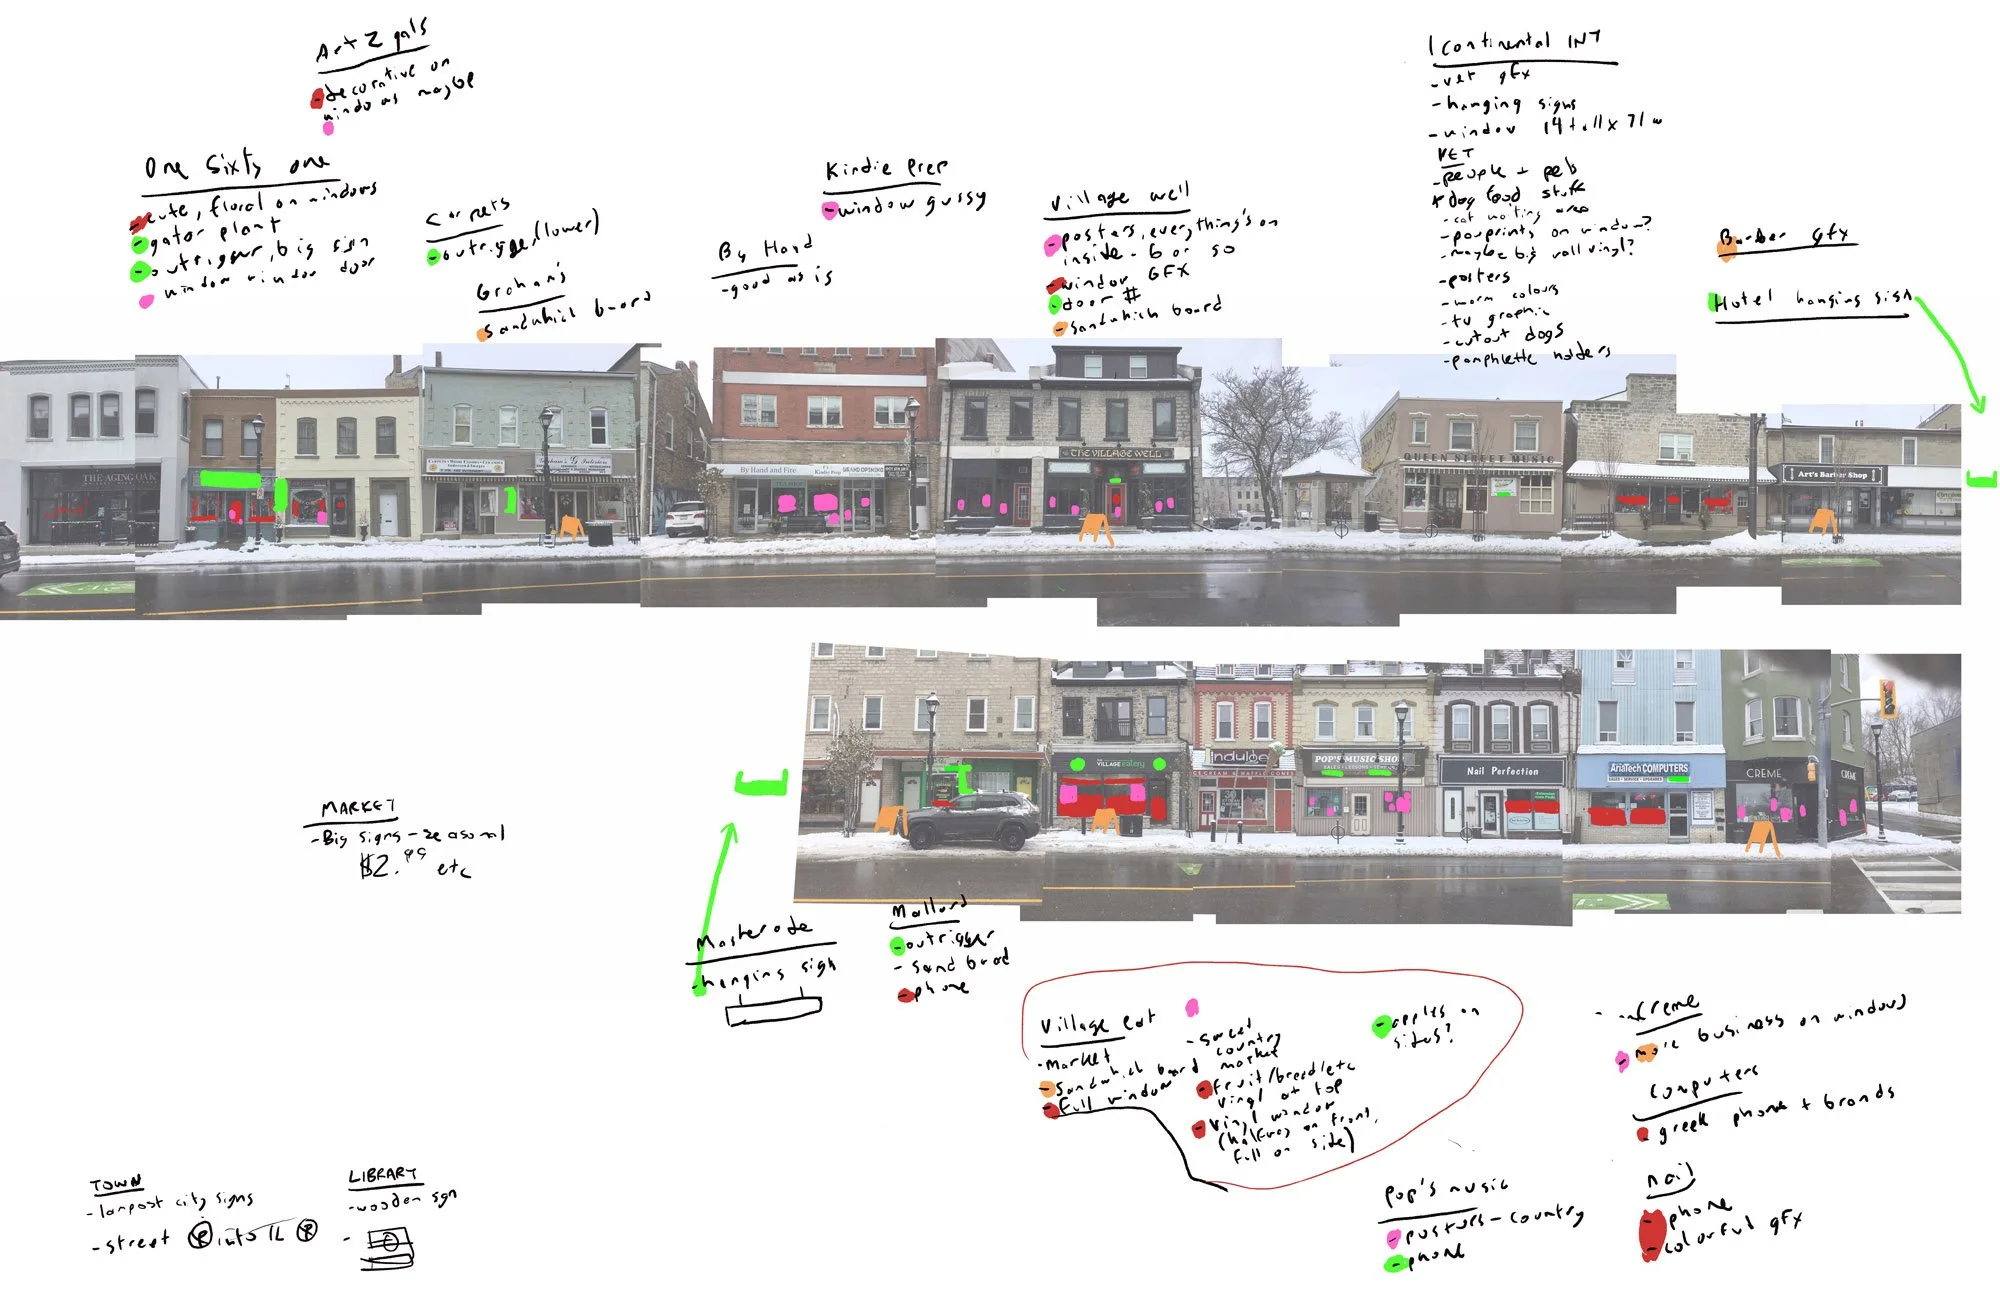 Art 2 gals
- decorative on
windows maybe
One Sixty one
- cute, floral on windows
- gator plant
- outrigger, big sign
window window door
Carpets
- outrigger (lower)
Graham's
- sandwhich board
By Hand
- good as is
Kindie Prep
- window gussy
Village well
- posters, everything's on
inside - 6 or so
- window GFX
- door #
- sandwhich board
Icontinental INT
- vet gfx
- hanging signs
- window 14 tall x 71 w
VET
- people + pets
dog food stuff
- cat waiting area
- pawprints on window?
- maybe big wall vinyl?
- posters
- warm colours
- tv graphic
- cutout dogs
- pamphlette holders
Barber gfx
Hotel hanging sign
THE AGING OAK
By Hand and Fire
Kindie Prep
GRAND OPENING
THE VILLAGE WELL
QUEEN STREET MUSIC
Art's Barber Shop
VILLAGE eatery
indulge
POP'S MUSIC SHOP
Nail Perfection
AriaTech COMPUTERS
CREME
CREME
MARKET
- Big signs - seasonal
$2.99 etc
Masterade
- hanging sign
Mallard
- outrigger
- sand brod
- phone
Village eat
- market
- sandwhich board
- Full window
- sweet
country
market
- fruit/bread/etc
vinyl at top
- vinyl window
(halfway on front,
full on side)
- apples on
sides?
Creme
- more business on windows
Computers
- greek phone + brands
nail
- phone
- colorful gfx
Pop's music
- posters - country
- phone
TOWN
- lampost city signs
- street P into IL P
LIBRARY
- wooden sgn